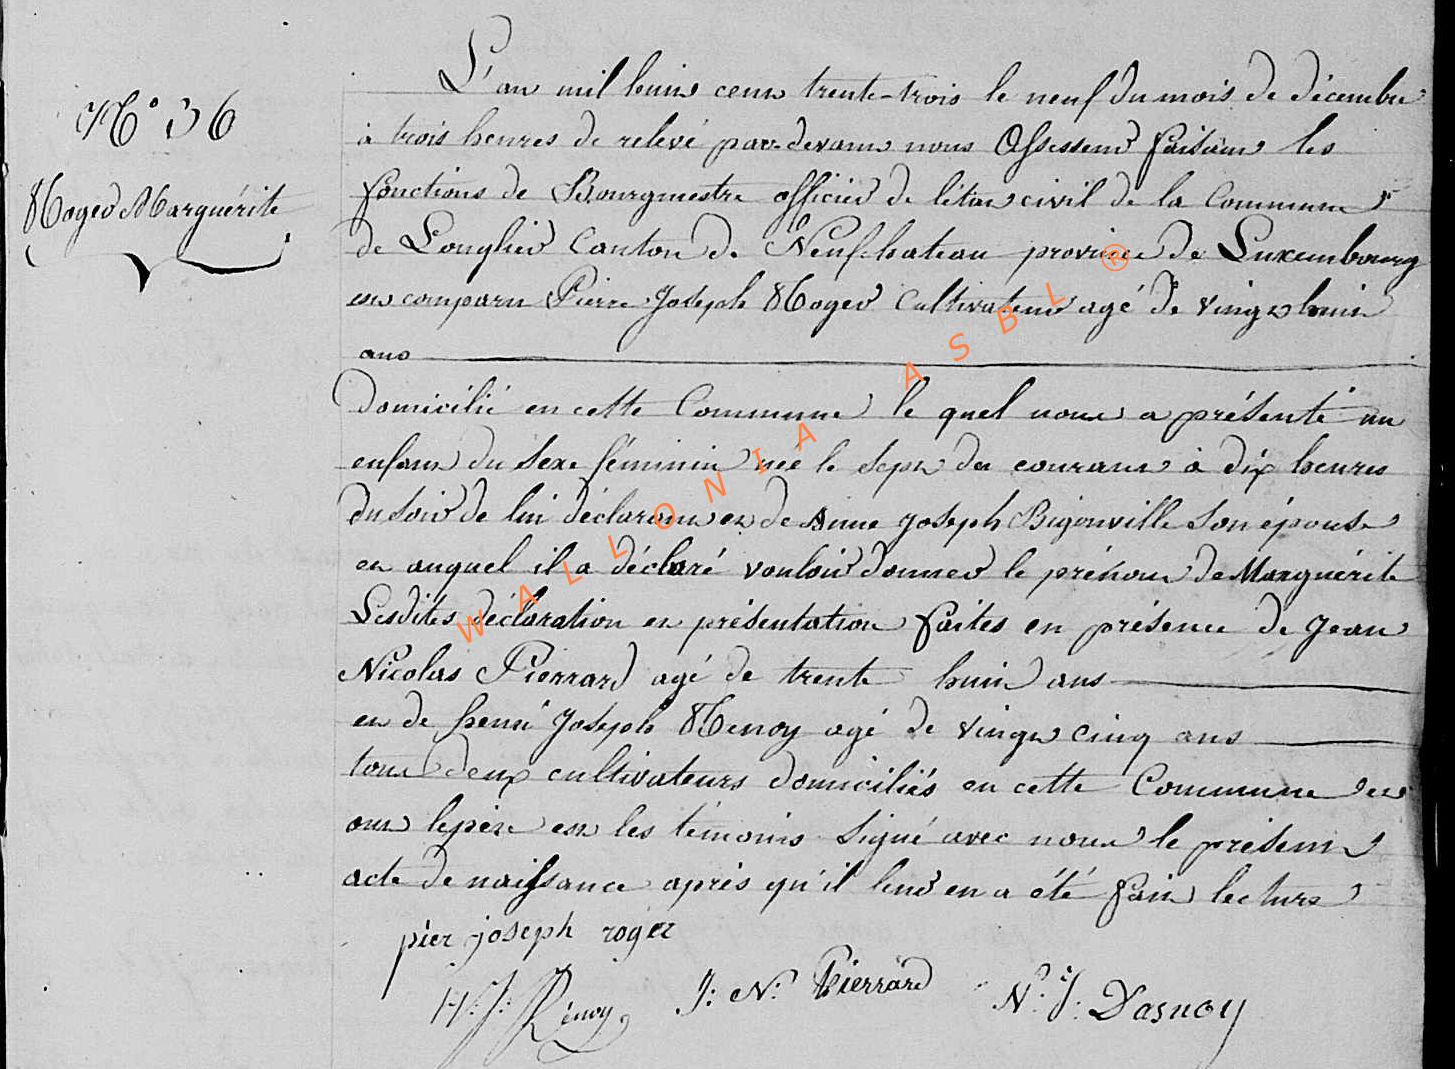 N° 36
Roger Marguérite
L'an mil huit cent trente-trois le neuf du mois de décembre
à trois heures de relevé par-devant nous Assesseur faisant les
fonctions de Bourgmestre officier de létat civil de la Commune
de Longlier Canton de Neufchateau province de Luxembourg
est comparu Pierre Joseph Roger Cultivateur agé de vingt huit
ans
domicilié en cette Commune le quel nous a présenté un
enfant du Sexe féminin née le Sept du courant à dix heures
du soir de lui déclarant et de Anne Joseph Bigonville Son épouse
et auquel il a déclaré vouloir donner le prénom de Marguérite
Lesdites déclaration et présentation faites en présence de Jean
Nicolas Pierrard agé de trente huit ans
et de henri Joseph Renoy agé de vingt cinq ans
tous deux cultivateurs domiciliés en cette Commune et
ont le père et les témoins Signé avec nous le présent
acte de naissance après qu'il leur en a été fait lecture
pier joseph roger
H. J. Rénoy
J. N. Pierrard
N. J. Dasnoy
WALLONIA ASBL ®